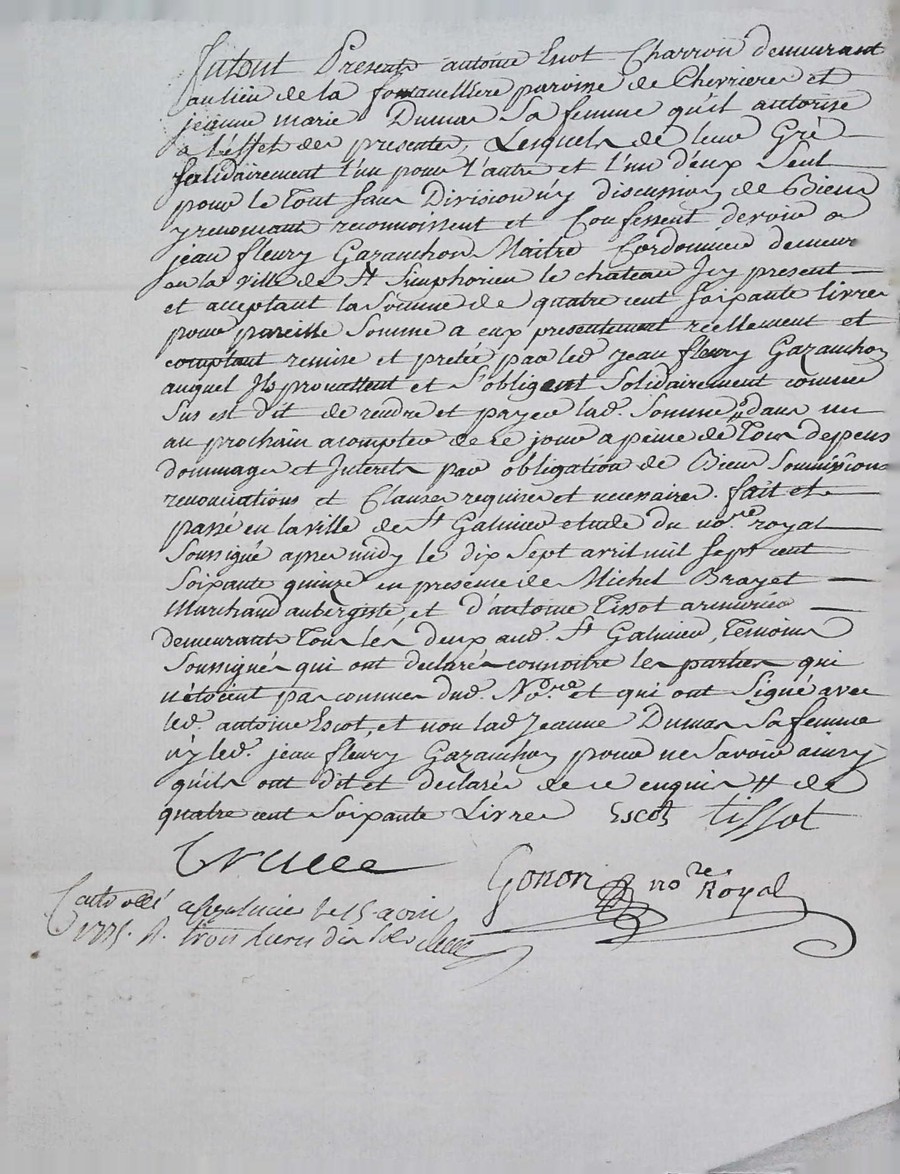 Furent Presents antoine Escot Charron demeurant
au lieu de la fontanelliere paroisse de Chevrieres et
jeanne marie Dumas Sa femme qu'il autorise
a l'effet des presentes, Lesquels de leur Gré
Solidairement l'un pour l'autre et l'un d'eux Seul
pour le Tout Sans Division n'y discussion de Biens
y renoncant reconnoissent et Confessent devoir a
jean fleury Gazanchon Maitre Cordonnier demeur
en la ville de St Simphorien le chateau Icy present
et acceptant la Somme de quatre cent Soixante livres
pour pareille Somme a eux presentement réellement et
comptant remise et pretée par led. jean fleury Gazanchon
auquel Ils promettent et S'obligent Solidairement comme
Sus est dit de rendre et payer lad. Somme dans un
an prochain a compter de ce jour a peine de Tous depens
dommages et Interets par obligation de Biens Soumissions
renonciations et Clauses requises et necessaires. fait et
passé en la ville de St Galmier etude du nore. royal
Soussigné apres midy le dix Sept avril mil Sept cent
Soixante quinze en presence de Michel Brazet
Marchand aubergiste, et d'antoine Tissot armurier
demeurants Tous les deux aud. St Galmier, Temoins
Soussignés qui ont declarés connoitre les parties qui
n'étoient pas connues dud. Nore. et qui ont Signé avec
led. antoine Escot, et non lad Jeanne Dumas Sa femme
n'y led. jean fleury Gazanchon pour ne Savoir ainsy
qu'ils ont dit et declarés de ce enquis # de
quatre cent Soixante Livres Escot tissot
Gonon nore Royal
avril
1775. R. trois livres dix Sols